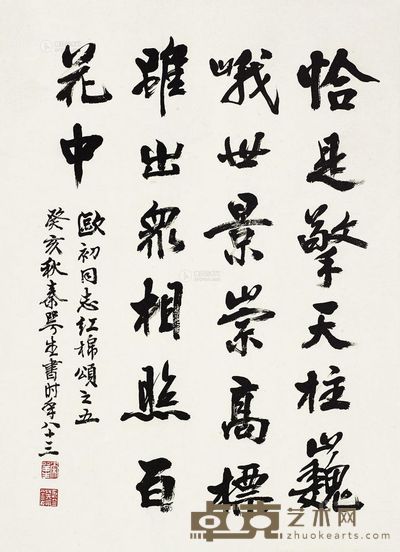 恰是擎天柱巍
峨世景崇高標
雖出眾相照百
花中
歐初同志紅棉頌之五
癸亥秋秦咢生書时年八十三
卓克艺术网
www.zhuokearts.com